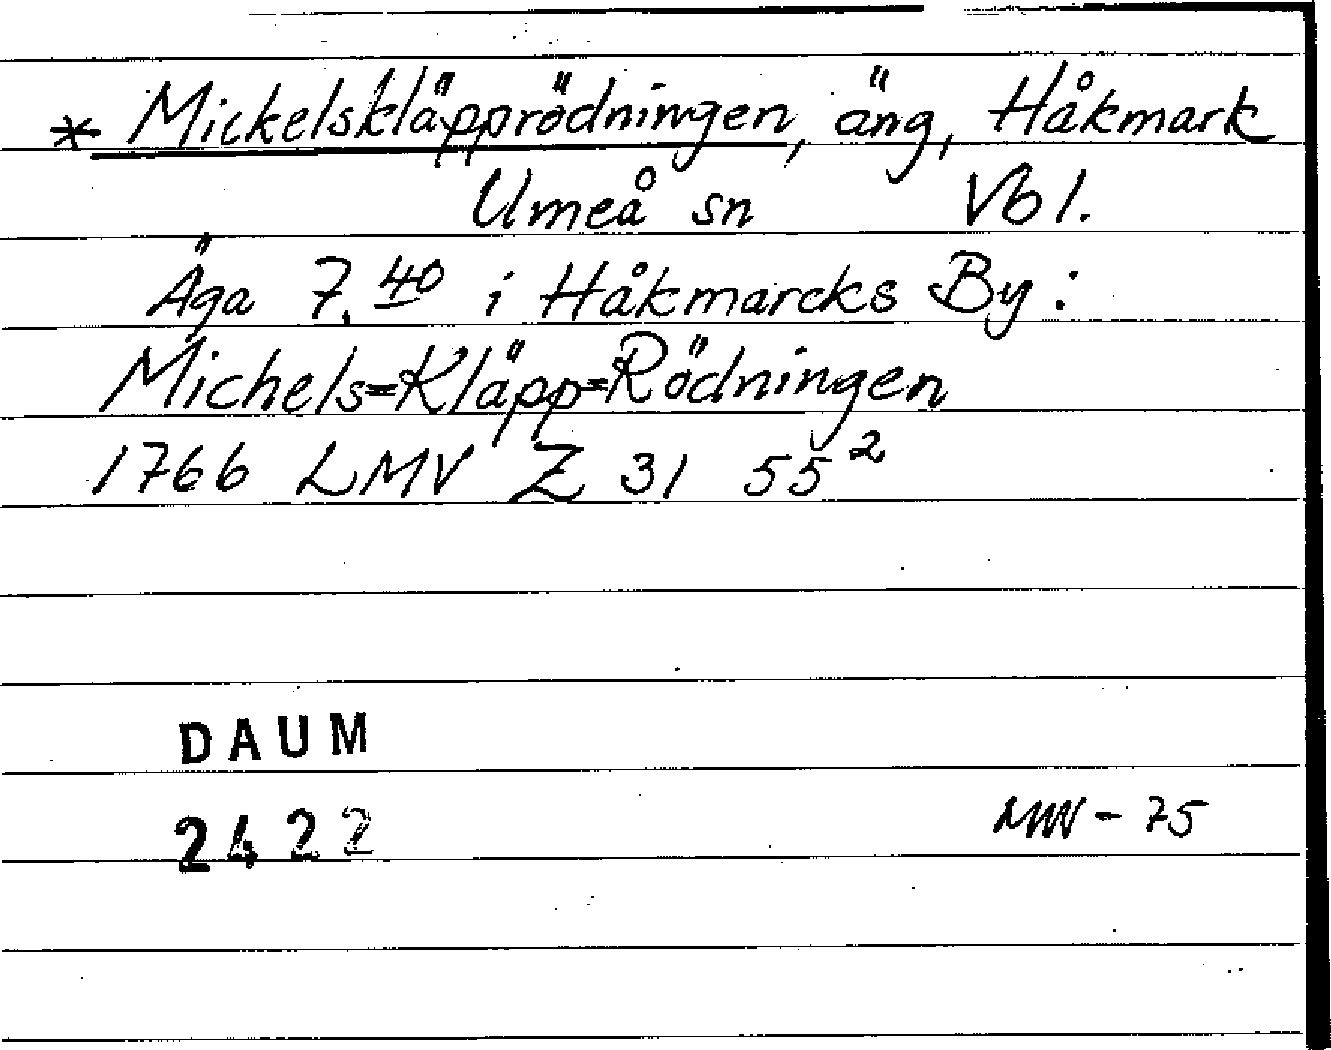 * Mickelskläpprödningen, äng, Håkmark
Umeå sn Vb l.
Äga 7.40 i Håkmarcks By:
Michels=Kläpp=Rödningen
1766 LMV Z 31 55²
DAUM
2422
MW - 75